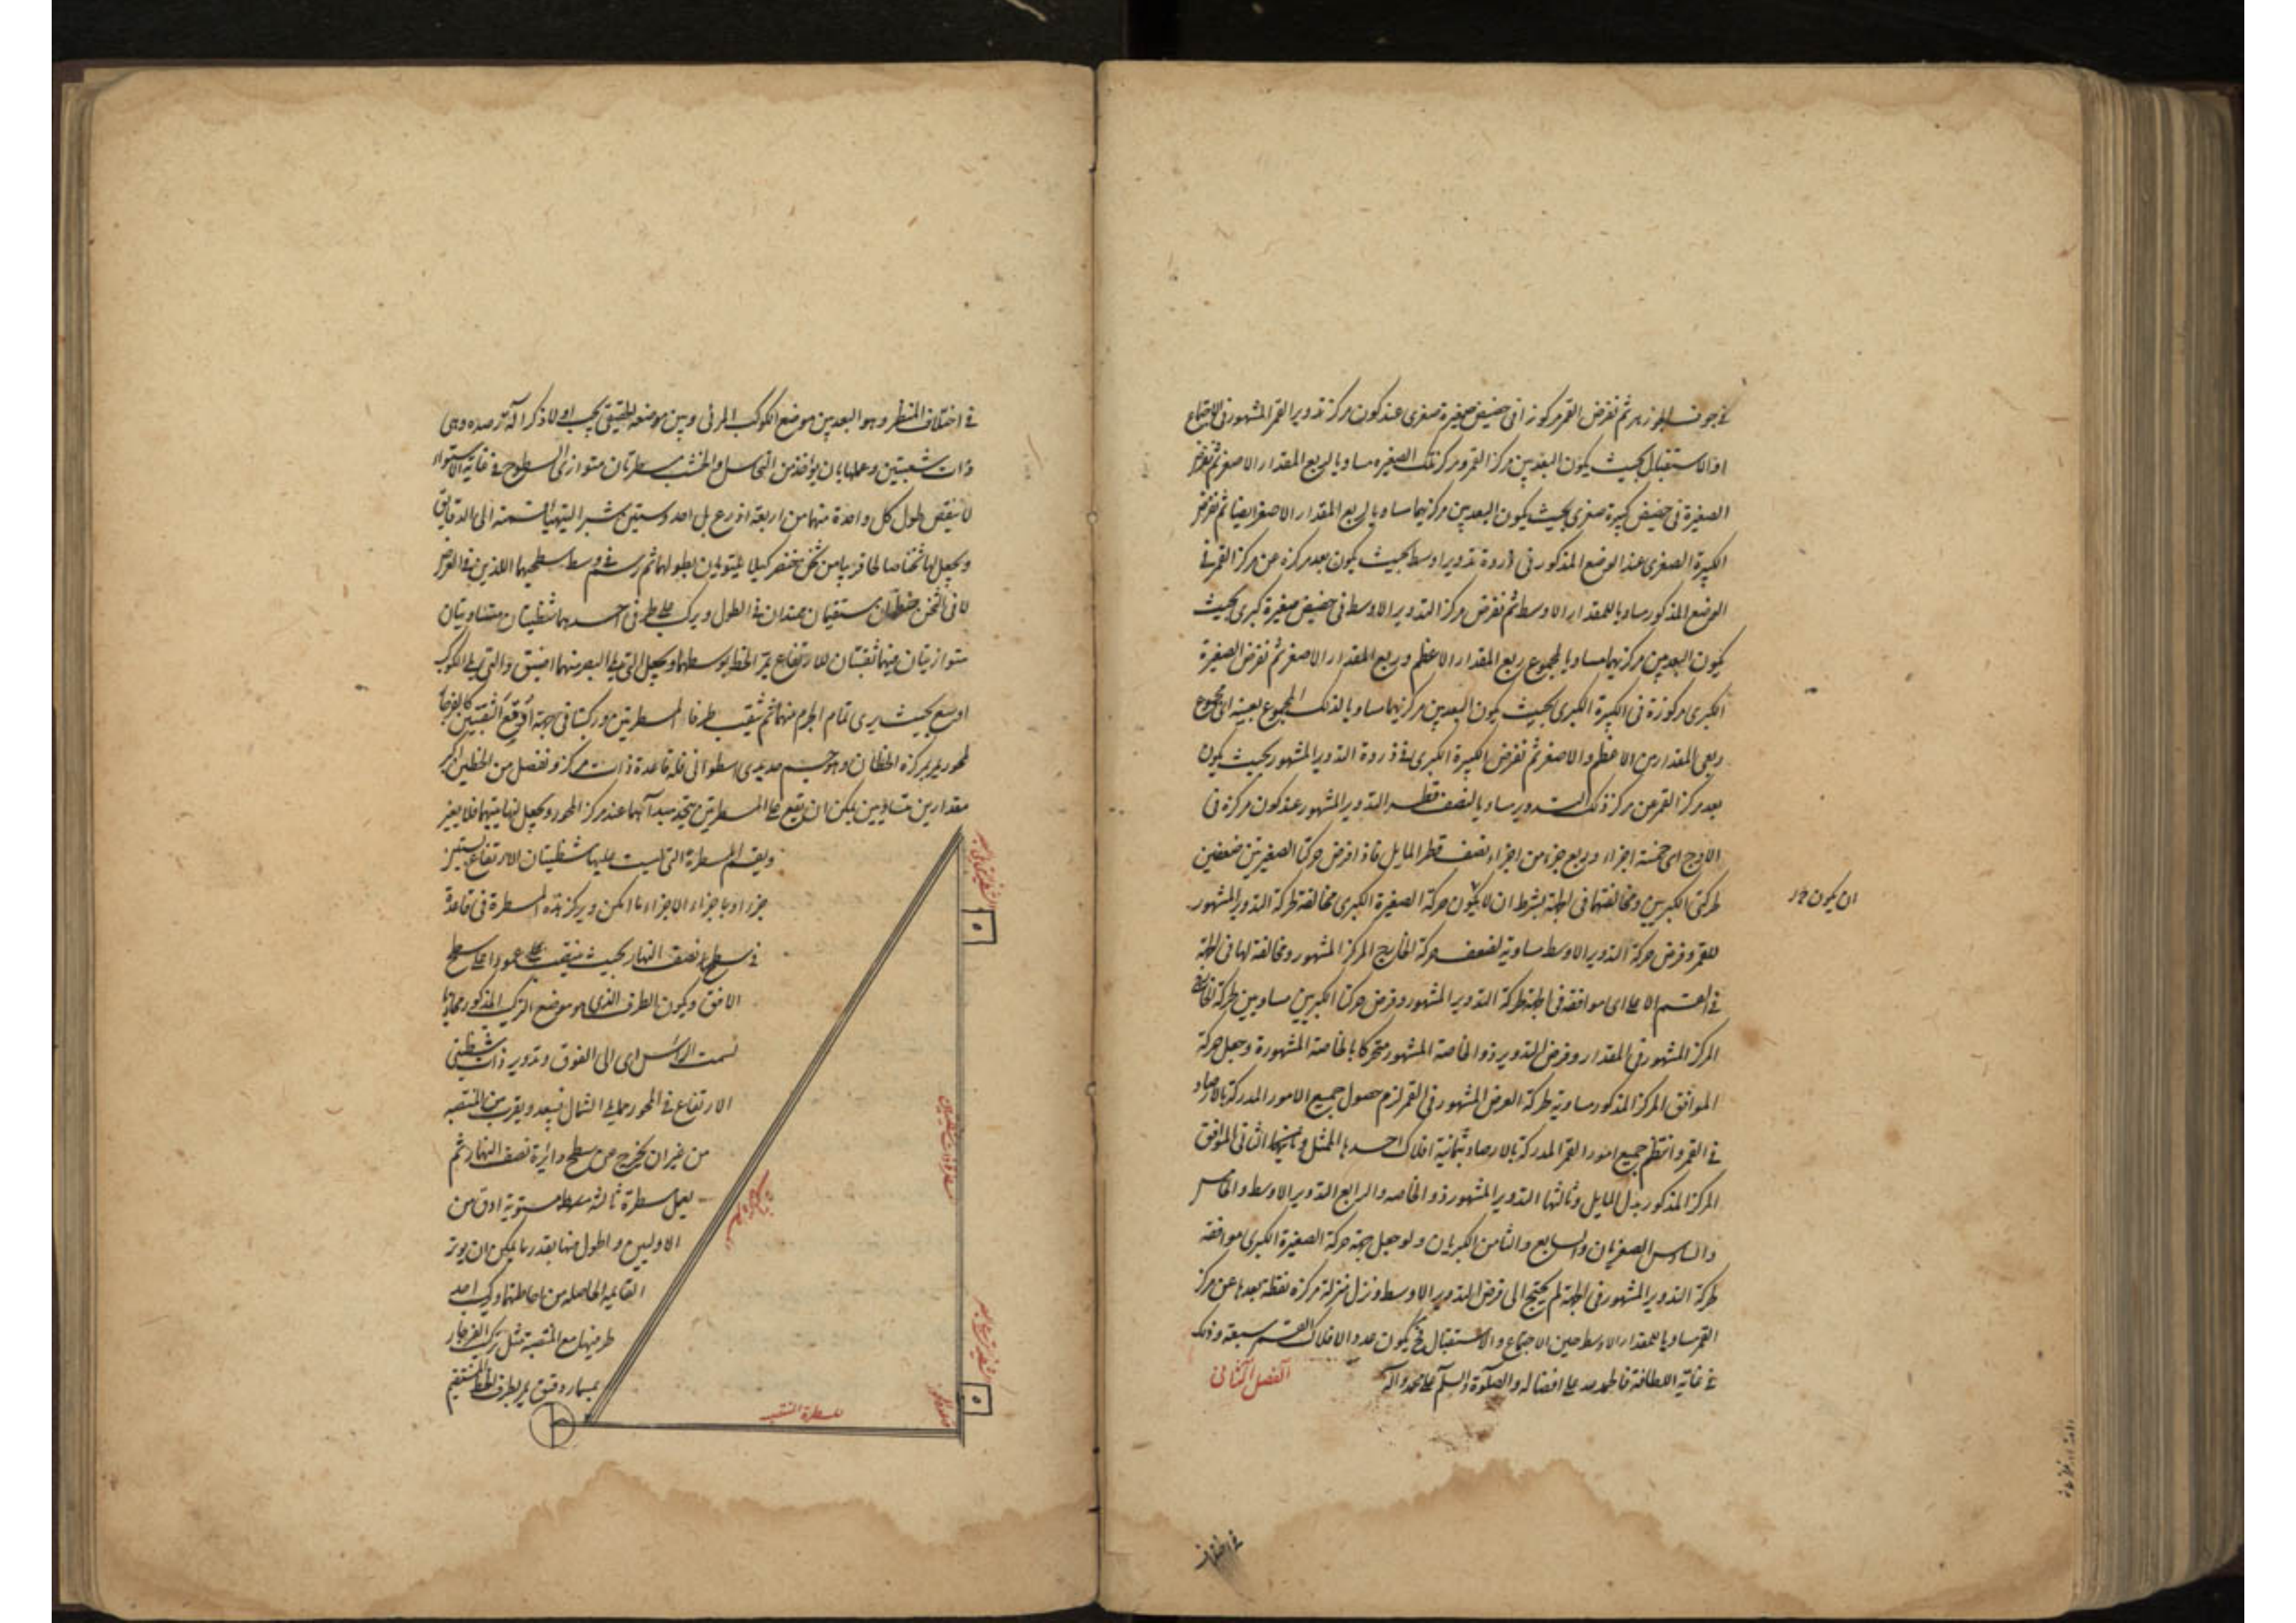 في جوف الجوزهر ثم نفرض القمر مركوزا في حضيض صغيرة صغرى عند كون مركز تدوير القمر المشهور في الاجتماع
او الاستقبال بحيث يكون البعد بين مركز القمر ومركز تلك الصغيره مساويا لربع المقدار الاصغر ثم نفرض
الصغيرة في حضيض كبيرة صغرى بحيث يكون البعد بين مركزيهما مساويا لربع المقدار الاصغر ايضا ثم نفرض
الكبيرة الصغرى عند الوضع المذكور في ذروة تدوير اوسط بحيث يكون بعد مركزه عن مركز القمر في
الوضع المذكور مساويا للمقدار الاوسط ثم نفرض مركز التدوير الاوسط في حضيض صغيرة كبرى بحيث
يكون البعد بين مركزيهما مساويا لمجموع ربع المقدار الاعظم وربع المقدار الاصغر ثم نفرض الصغيرة
الكبرى مركوزة في الكبيرة الكبرى بحيث يكون البعد بين مركزيهما مساويا لذلك المجموع بعينه اى مجموع
ربعى المقدارين الاعظم والاصغر ثم نفرض الكبيرة الكبرى في ذروة التدوير المشهور بحيث يكون
بعد مركز القمر عن مركز ذلك التدوير مساويا لنصف قطر التدوير المشهور عند كون مركزه في
الاوج اى خمسة اجزاء وربع جزء من اجزاء نصف قطر المايل فاذا فرض حركتا الصغيرتين ضعفين
لحركتى الكبريين ومخالفتهما في الجهة بشرط ان لا يكون حركة الصغيرة الكبرى مخالفة لحركة التدوير المشهور
ان يكون
للقمر وفرض حركة التدوير الاوسط مساوية لضعف حركة الخارج المركز المشهور ومخالفة لها في الجهة
في القسم الاعلى اى موافقة في الجهة لحركة التدوير المشهور وفرض حركتا الكبريين مساويتين لحركة الخارج
المركز المشهور في المقدار وفرض التدوير ذو الخاصة المشهور متحركا بالخاصة المشهورة وجعل حركة
الموافق المركز المذكور مساوية لحركة العرض المشهور في القمر لزم حصول جميع الامور المدركة بالارصاد
في القمر وانتظم جميع امور القمر المدركة بالارصاد بثمانية افلاك احدها الممثل وثانيها الثاني الموافق
المركز المذكور بدل المايل وثالثها التدوير المشهور ذو الخاصه والرابع التدوير الاوسط والخامس
والسادس الصغريان والسابع والثامن الكبريان ولو جعل جهة حركة الصغيرة الكبرى موافقة
لحركة التدوير المشهور في الجهة لم يحتج الى فرض التدوير الاوسط ونزل منزلة مركزه نقطة بعدها عن مركز
القمر مساويا للمقدار الاوسط حين الاجتماع والاستقبال فح يكون عدد الافلاك القمر سبعة وذلك
في غاية اللطافة فالحمد لله على افضاله والصلوة والسلم على محمد وآله الفصل الثاني
في اختلاف
في اختلاف المنظر وهو البعد بين موضع الكوكب المرئى وبين موضعه الحقيقي يجب اولا ذكر آلة ترصده وهى
ذات شعبتين وعملها بان يؤخذ من النحاس او الخشب مسطرتان متوازى السطوح في غاية الاستواء
لا ينقص طول كل واحدة منهما من اربعة اذرع بل احد وستين شبرا ليتهيأ القسمة الى الدقايق
ويجعل لهما ثخنا صالحا قريبا من ثخن خنصر كيلا يلتويان لطولهما ثم يرسم في وسط سطحيهما اللذين في العرض
لا في الثخن خطان مستقيمان ممتدان في الطول ويركب على طرفى احدهما شظيتان متساويتان
متوازيتان فيهما ثقبتان للارتفاع يمر الخط بوسطهما ويجعل التى تلى البصر منهما اضيق والتى تلى الكوكب
اوسع بحيث يرى تمام الجرم منها ثم يثقب طرفا المسطرتين وركبتا في جهة
لمحور يمر بمركزه الخطان وهو جسم حديدى اسطوانى له قاعدة ذات مركز ونفصل من الخطين
مقدارين متساويين يمكن ان يقع على المسطرتين يتحد مبدأهما عند مركز المحور ويجعل نهايتيهما
ويقسم المسطرة التى ليست عليها شظيتان الارتفاع بستين
جزءا وباجزاء الاجزاء ما امكن ويركز هذه المسطرة في قاعدة
في سطح نصف النهار بحيث ينتصب على عمودا على سطح
الافق ويكون الطرف الذى هو موضع التركيب المذكور محاذيا
لسمت الرأس اى الى الفوق وتدوير ذات شظيتى
الارتفاع في المحور مما يلى الشمال فيبعد ويقرب من المنتصبه
من غير ان يخرج عن سطح دائرة نصف النهار ثم
يعمل مسطرة ثالثة مستوية ادق من
الاوليين واطول منهما بقدر ما يمكن ان يوتر
القايمة الحاصله من احاطتهما ويركب احد
طرفيها مع المنتصبة مثل تركيب الفرجار
بمسمار دقيق يمر بطرف الخط المستقيم
المسطرة المنتصبه